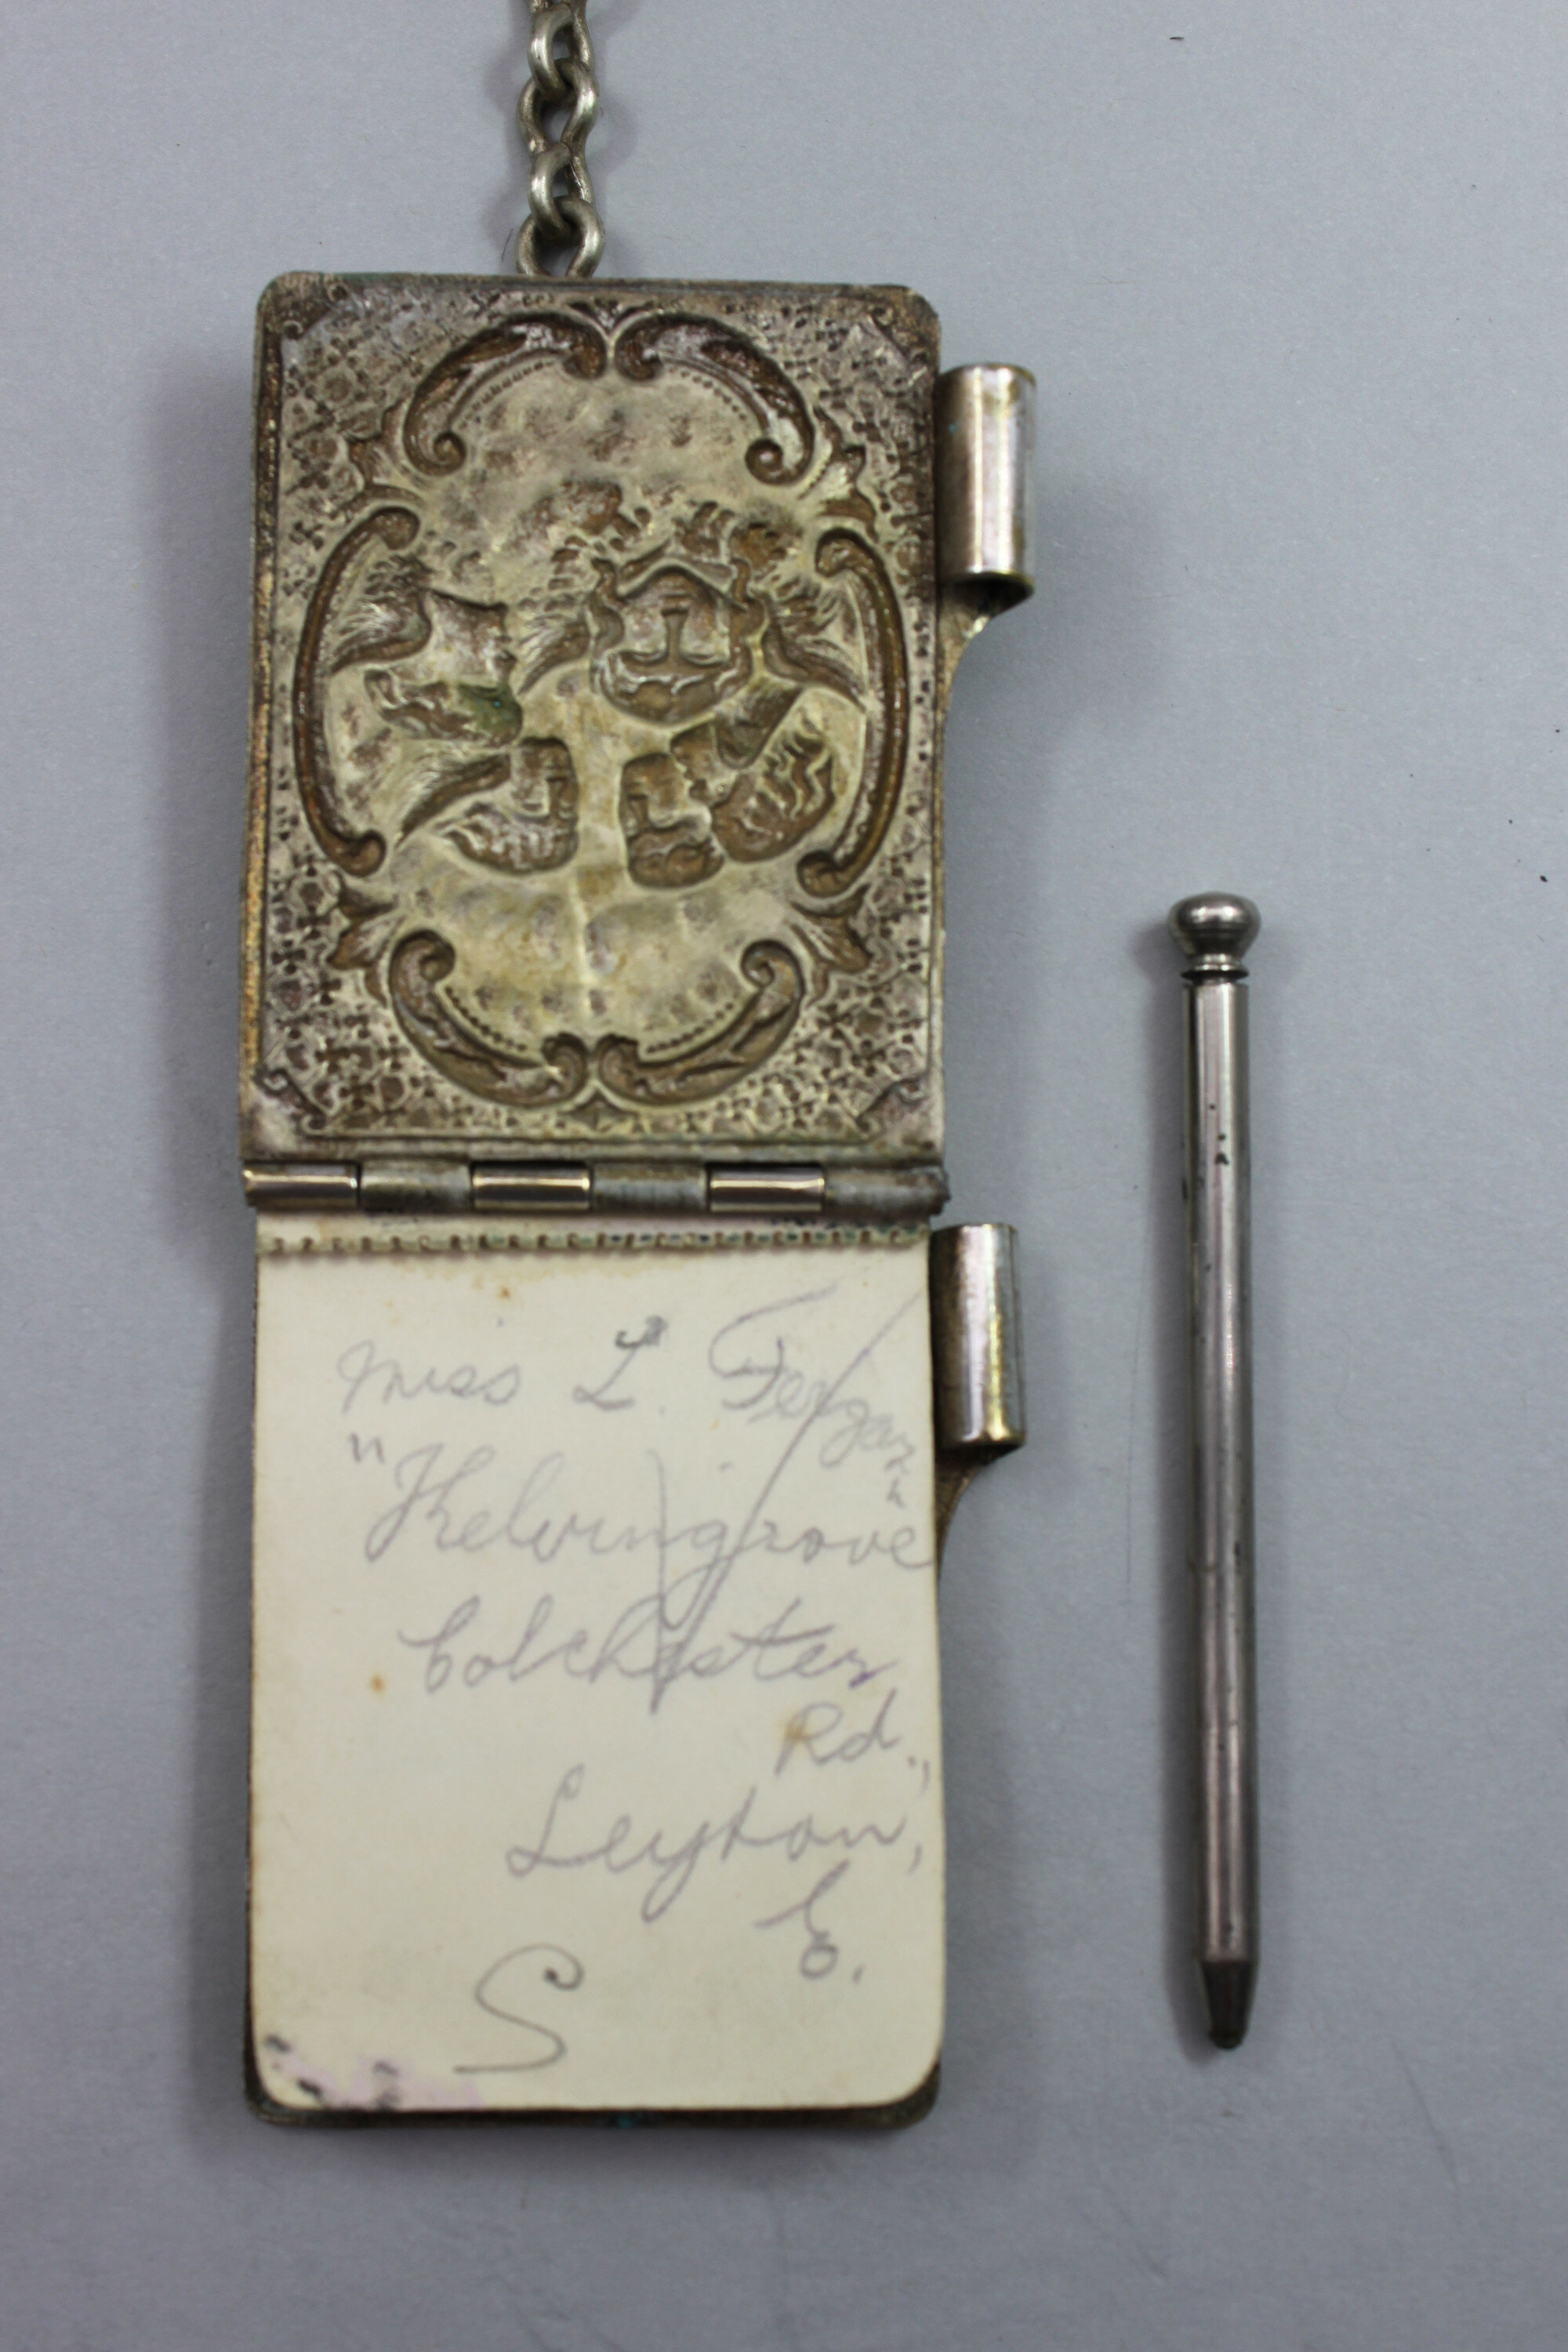 Miss L. Fergan
"Kelvingrove"
Colchester
Rd.,
Leyton,
E.
S